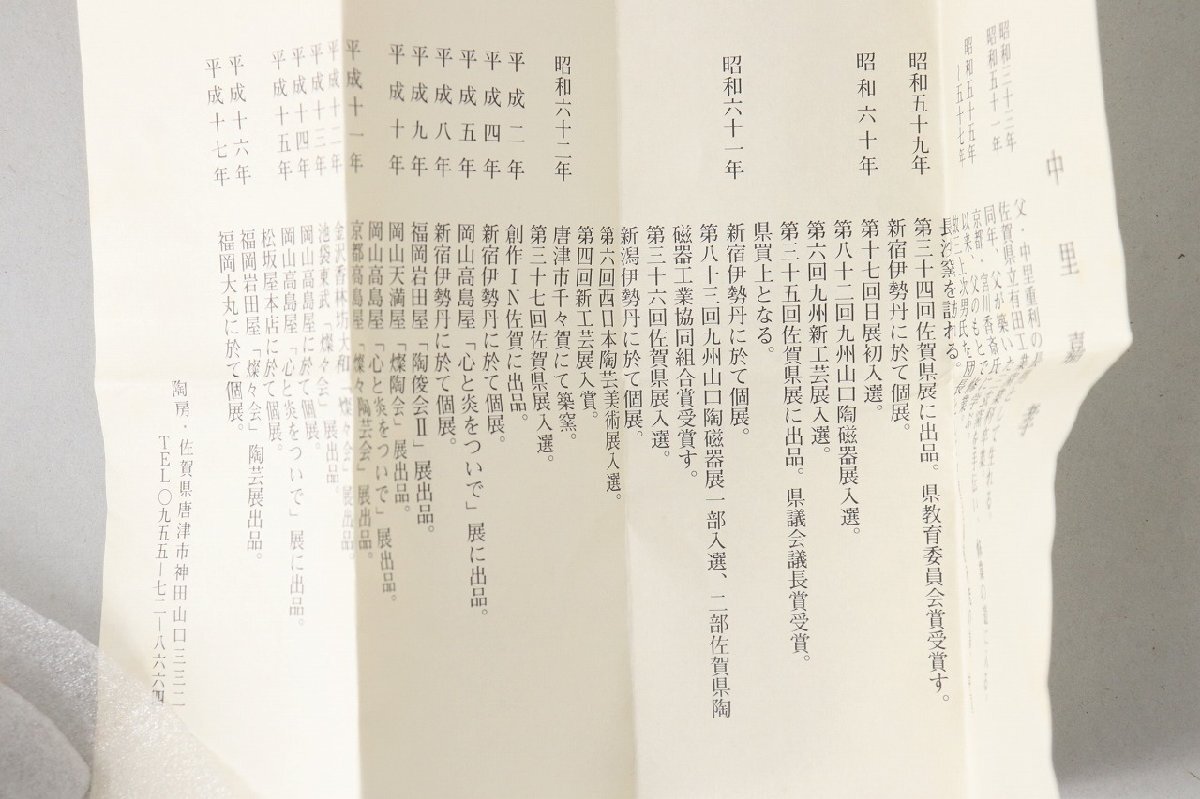 中里嘉孝
昭和三十三年 父・中里重利の
昭和五十一年 佐賀県立有田工業
同年、父が築いた
昭和五十五年 京都・宮川香斎氏
―五十七年 父のもとで
以来、
長沙窯を訪れる。
昭和五十九年 第三十四回佐賀県展に出品。県教育委員会賞受賞す。
新宿伊勢丹に於て個展。
昭和六十年 第十七回日展初入選。
第八十二回九州山口陶磁器展入選。
第六回九州新工芸展入選。
第三十五回佐賀県展に出品。県議会議長賞受賞。
県買上となる。
昭和六十一年 新宿伊勢丹に於て個展。
第八十三回九州山口陶磁器展一部入選、二部佐賀県陶
磁器工業協同組合賞受賞す。
第三十六回佐賀県展入選。
新潟伊勢丹に於て個展。
第六回西日本陶芸美術展入選。
第四回新工芸展入賞。
昭和六十二年 唐津市千々賀にて築窯。
第三十七回佐賀県展入選。
平成二年 創作IN佐賀に出品。
平成四年 新宿伊勢丹に於て個展。
平成五年 岡山高島屋「心と炎をついで」展に出品。
平成八年 新宿伊勢丹に於て個展。
平成九年 福岡岩田屋「陶俊会II」展出品。
平成十年 岡山天満屋「燦陶会」展出品。
岡山高島屋「心と炎をついで」展出品。
平成十一年 京都高島屋「燦々陶芸会」展出品。
平成十二年 金沢香林坊大和「燦々会」展出品。
平成十三年 池袋東武「燦々会」展出品。
平成十四年 岡山高島屋に於て個展。
平成十五年 岡山高島屋「心と炎をついで」展に出品。
松坂屋本店に於て個展。
平成十六年 福岡岩田屋「燦々会」陶芸展出品。
平成十七年 福岡大丸に於て個展。
陶房・佐賀県唐津市神田山口三三二
TEL〇九五五―七二―八六六四